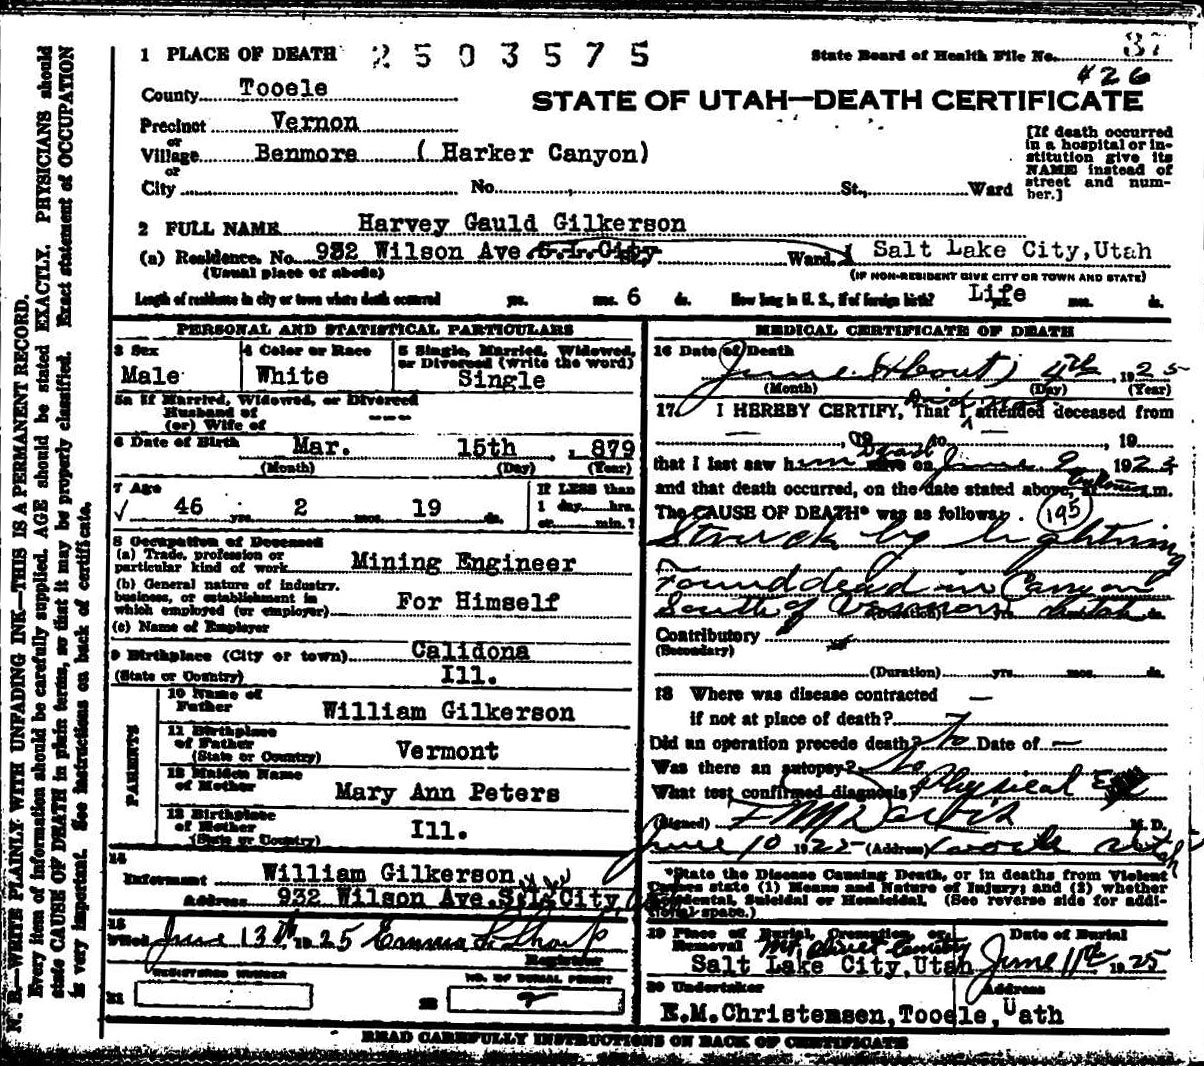 1 PLACE OF DEATH 2503575
State Board of Health File No. 37
426
County Tooele
STATE OF UTAH—DEATH CERTIFICATE
Precinct Vernon
or
Village Benmore ( Harker Canyon)
or
City No. St., Ward
[If death occurred
in a hospital or in-
stitution give its
NAME instead of
street and num-
ber.]
2 FULL NAME Harvey Gauld Gilkerson
(a) Residence. No. 932 Wilson Ave S.L.City St., Ward. Salt Lake City,Utah
(Usual place of abode) (IF NON-RESIDENT GIVE CITY OR TOWN AND STATE)
Length of residence in city or town where death occurred yrs. mos. 6 ds. How long in U. S., if of foreign birth? Life yrs. mos. ds.
PERSONAL AND STATISTICAL PARTICULARS
3 Sex
Male
4 Color or Race
White
5 Single, Married, Widowed,
or Divorced (write the word)
Single
5a If Married, Widowed, or Divorced
Husband of
(or) Wife of ---
6 Date of Birth Mar. 15th , 879
(Month) (Day) (Year)
7 Age
46 yrs. 2 mos. 19 ds.
If LESS than
1 day hrs.
or min.?
8 Occupation of Deceased
(a) Trade, profession or
particular kind of work Mining Engineer
(b) General nature of industry,
business, or establishment in
which employed (or employer) For Himself
(c) Name of Employer
9 Birthplace (City or town) Calidona
(State or Country) Ill.
PARENTS
10 Name of
Father William Gilkerson
11 Birthplace
of Father
(State or Country) Vermont
12 Maiden Name
of Mother Mary Ann Peters
13 Birthplace
of Mother
(State or Country) Ill.
14
Informant William Gilkerson
Address 932 Wilson Ave.S.L.City
15
Filed June 13th 1925 Emma
Registrar
REGISTERED NUMBER
21
NO. OF BURIAL PERMIT
22
MEDICAL CERTIFICATE OF DEATH
16 Date of Death
June (About) 4th, 1925
(Month) (Day) (Year)
17 I HEREBY CERTIFY, That I did not attended deceased from
, 19 to , 19
that I last saw him Dead alive on June 9 192
and that death occurred, on the date stated above, at unknown m.
The CAUSE OF DEATH* was as follows: 195
Struck by lightning
Found dead in Canyon
South of Vernon Utah
(Duration) ds.
Contributory
(Secondary)
(Duration) yrs. mos. ds.
18 Where was disease contracted —
if not at place of death?
Did an operation precede death? No Date of —
Was there an autopsy? No
What test confirmed diagnosis? Physical
(Signed) F M Davis M. D.
June 10 1925 (Address) Utah
*State the Disease Causing Death, or in deaths from Violent
Causes state (1) Means and Nature of Injury; and (2) whether
Accidental, Suicidal or Homicidal. (See reverse side for addi-
tional space.)
19 Place of Burial, Cremation, or
Removal Mt. Olivet Cemetery
Salt Lake City,Utah
Date of Burial
June 11th 1925
20 Undertaker
E.M.Christensen,
Address
Tooele, Uath
READ CAREFULLY INSTRUCTIONS ON BACK OF CERTIFICATE
N. B.—WRITE PLAINLY WITH UNFADING INK—THIS IS A PERMANENT RECORD.
Every item of information should be carefully supplied. AGE should be stated EXACTLY. PHYSICIANS should
state CAUSE OF DEATH in plain terms, so that it may be properly classified. Exact statement of OCCUPATION
is very important. See instructions on back of certificate.